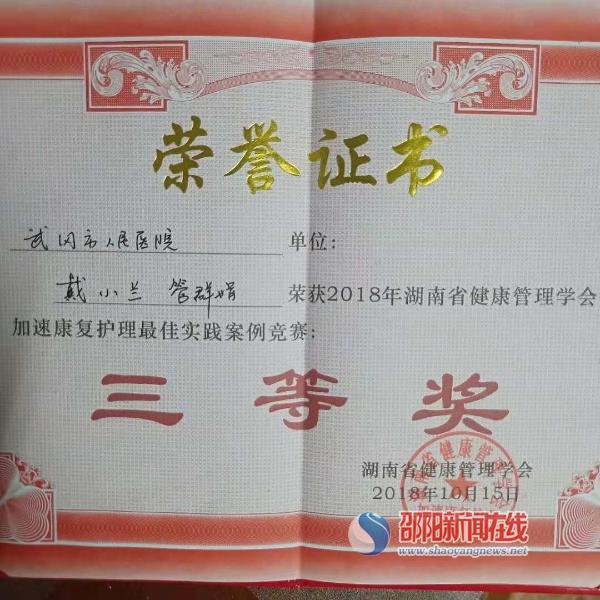 荣誉证书
武冈市人民医院 单位:
戴小兰 管群娟 荣获2018年湖南省健康管理学会
加速康复护理最佳实践案例竞赛:
三等奖
湖南省健康管理学会
2018年10月15日
邵阳新闻在线
www.shaoyangnews.net